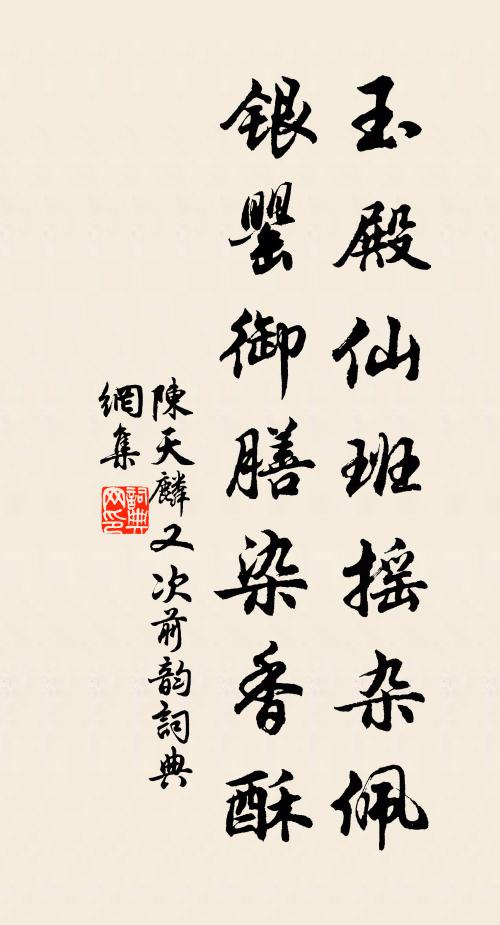 玉殿仙班摇杂佩
银罂御膳染香酥
陳天麟又次前韵詞典
網集
詞典
网印